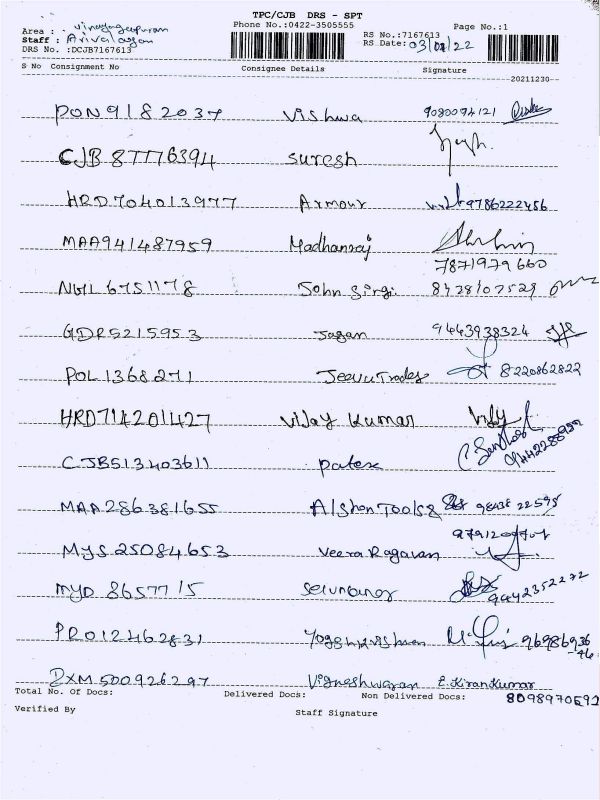 TPC/CJB DRS - SPT
Area : Vinayagapuram Phone No.:0422-3505555 Page No.:1
Staff : Arivalagan RS No.:7167613
DRS No. :DCJB7167613 RS Date:03/01/22
S No Consignment No Consignee Details Signature
20211230
PON9182037 Vishwa 9080094121
CJB 877776394 Suresh
HRD704013977 Armour 9786222456
MAA941487959 Madhanraj
7871979660
NGL6751178 John Singi 8428107529
GDR5215953 Jagan 9443938324
POL1368271 Jeevu Trades 8220862822
HRD714201427 Vijay Kumar Vijay
CJB513403611 Patex C. Santhosh 9442288959
MAA286381655 Alshon Tools 98438 22595
MYS25084653 Veera Ragavan
MYD 8657715 9442352272
PRO12462831 Yogesh
DXM500926297 Vigneshwaran E.Kirankumar
Total No. Of Docs: Delivered Docs: Non Delivered Docs: 8098970592
Verified By Staff Signature